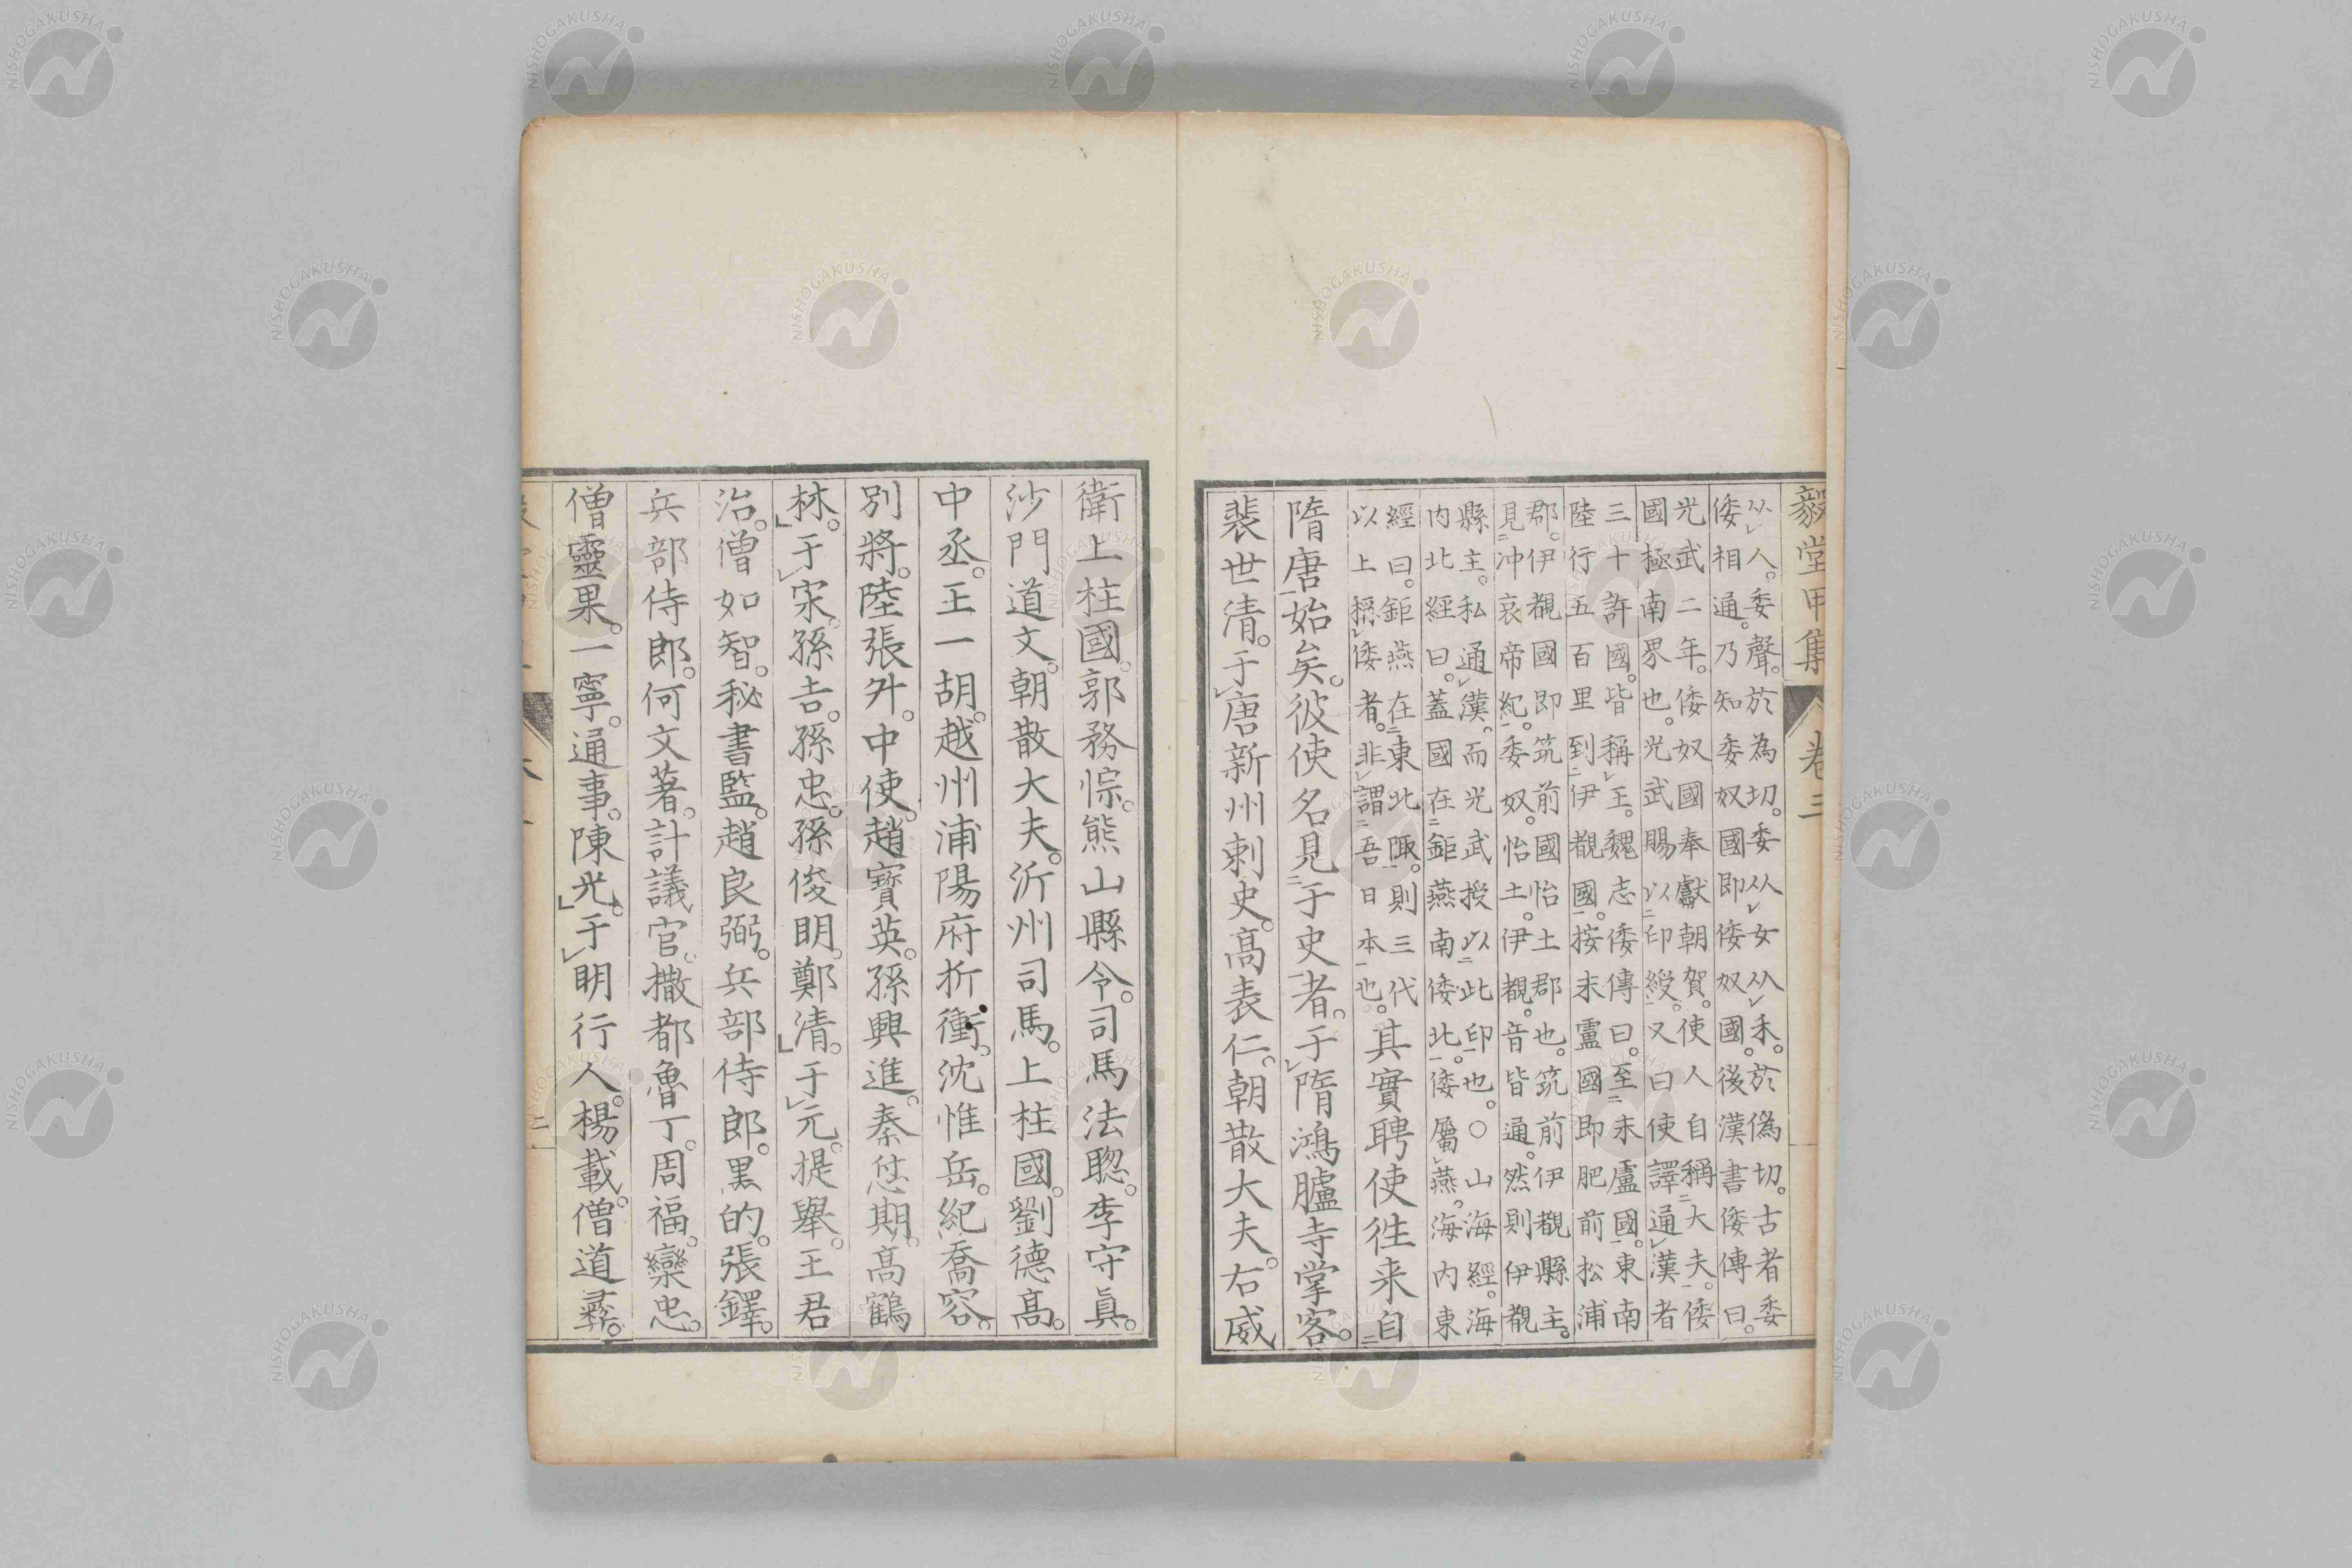 毅堂甲集 卷三
从人。委聲。於為切。委从女从禾。於偽切。古者委
倭相通。乃知委奴國即倭奴國。後漢書倭傳曰。
光武二年。倭奴國奉獻朝賀。使人自稱大夫。倭
國極南界也。光武賜以印綬。又曰使譯通漢者
三十許國。皆稱王。魏志倭傳曰。至末盧國。東南
陸行五百里到伊覩國。按末盧國即肥前松浦
郡。伊覩國即筑前國怡土郡也。筑前伊覩縣主。
見冲哀帝紀。委奴。怡土。伊覩。音皆通。然則伊覩
縣主。私通漢。而光武授以此印也。○山海經。海
内北經曰。蓋國在鉅燕南倭北。倭屬燕。海內東
經曰。鉅燕在東北陬。則三代
以上稱倭者。非謂吾日本也。其實聘使徃来自
隋唐始矣。彼使名見于史者。于隋鴻臚寺掌客。
裴世清。于唐新州刺史。高表仁。朝散大夫。右威
衛上柱國。郭務悰。熊山縣令。司馬法聰。李守眞。
沙門道文。朝散大夫。沂州司馬。上柱國。劉德高。
中丞。王一胡。越州浦陽府折衝。沈惟岳。紀喬容。
別將。陸張升。中使。趙寶英。孫興進。秦怤期。高鶴
林。于宋。孫吉。孫忠。孫俊明。鄭清。于元。提舉。王君
治。僧如智。秘書監。趙良弼。兵部侍郎。黑的。張鐸。
兵部侍郎。何文著。計議官。撒都魯丁。周福。欒忠。
僧靈果。一寧。通事。陳光。于明行人。楊載。僧道彝。